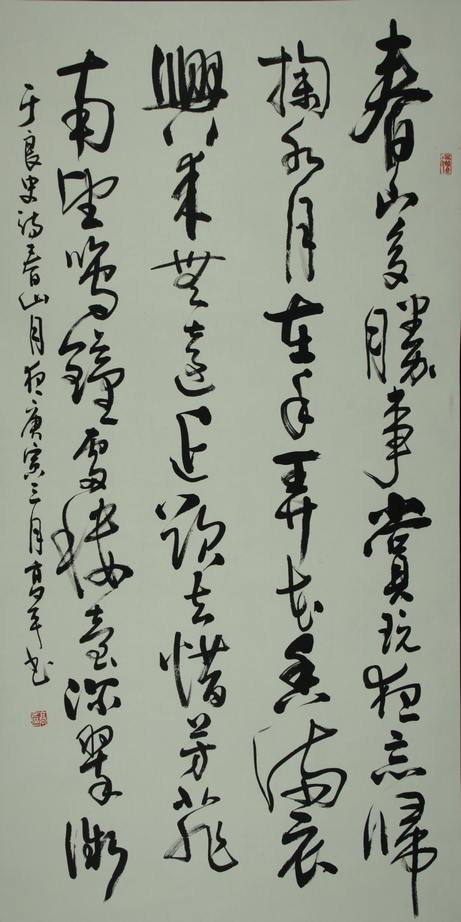 春山多勝事賞玩夜忘歸
掬水月在手弄花香滿衣
興來無遠近欲去惜芳菲
南望鳴鐘處樓臺深翠微
于良史诗春山月夜庚寅三月高平书